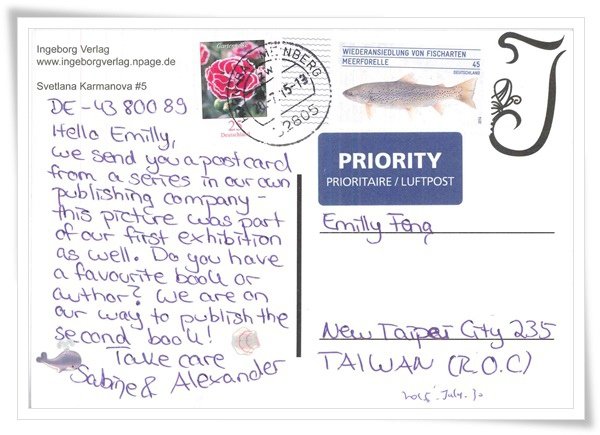 Ingeborg Verlag
www.ingeborgverlag.npage.de
Svetlana Karmanova #5
DE-4380089
Hello Emilly,
we send you a postcard
from a series in our own
publishing company -
this picture was part
of our first exhibition
as well. Do you have
a favourite book or
author? We are on
our way to publish the
second book!
Take care
Sabine & Alexander
Gartennelke
Deutschland
WIEDERANSIEDLUNG VON FISCHARTEN
MEERFORELLE
45
DEUTSCHLAND
PRIORITY
PRIORITAIRE / LUFTPOST
Emilly Fong
New Taipei City 235
TAIWAN (R.O.C)
2015. July. 30